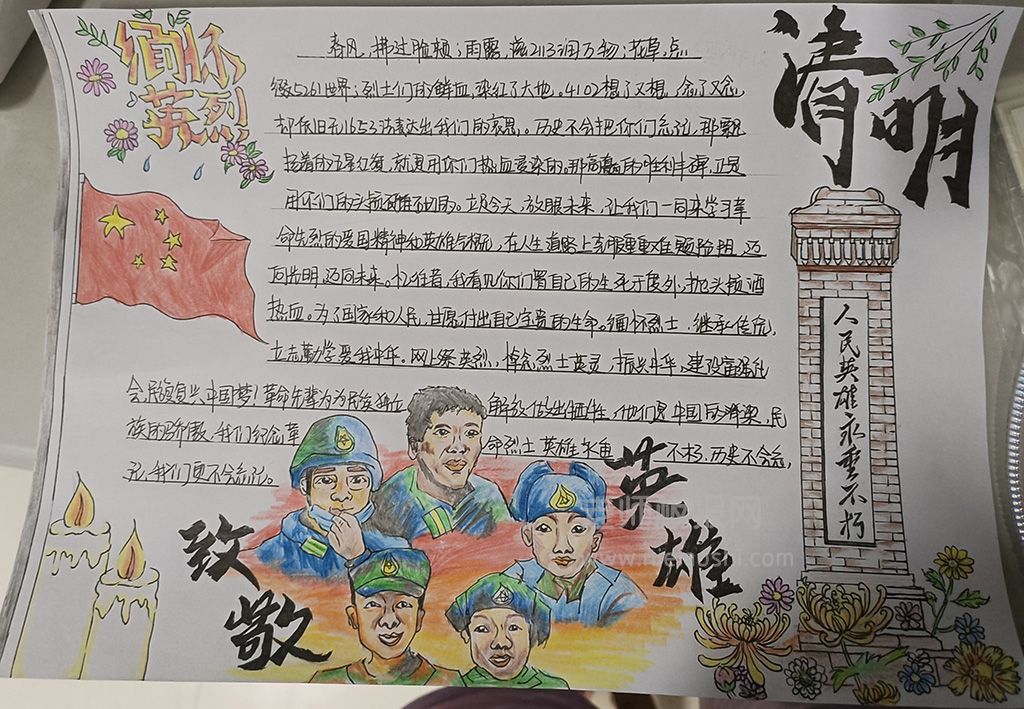 缅怀
英烈
清明
春风，拂过脸颊；雨露，滋2113润万物；花草，点
缀5261世界；烈士们的鲜血，染红了大地。4102想了又想，念了又念，
却依旧无1653法表达出我们的哀思。历史不会把你们忘记，那飘
扬着的五星红旗，就是用你们热血浸染的，那高矗的胜利丰碑，正是
用你们的头颅砌成的。立足今天，放眼未来，让我们一同来学习革
命先烈的爱国精神和英雄气概，在人生道路上克服重重难题险阻，迈
向光明，迈向未来。忆往昔，我看见你们置自己的生死于度外，抛头颅洒
热血。为了国家和人民，甘愿付出自己宝贵的生命。缅怀烈士，继承传统，
立志勤学爱我中华。网上祭英烈，悼念烈士英灵，振兴中华，建设富强社
会，民族复兴中国梦！革命先辈为为民族独立 解放做出牺牲，他们是中国的脊梁，民
族的骄傲，我们纪念革 命烈士 英雄永垂 不朽，历史不会忘
记，我们更不会忘记。
人民英雄永垂不朽
致敬
英雄